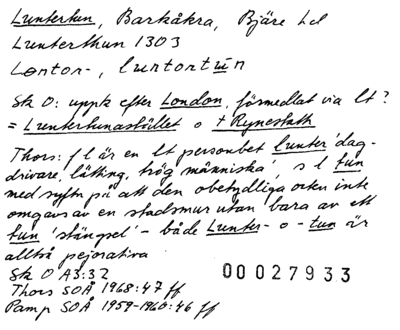 Luntertun, Barkåkra, Bjäre hd
Lunterthun 1303
Lontor-, luntortún
Sk O: uppk efter London, förmedlat via lt?
= Luntertunastället o + Rynestath
Thors: f l är en lt personbet lunter 'dag-
drivare, lätting, trög människa' s l tun
med syftn på att den obetydliga orten inte
omgavs av en stadsmur utan bara av ett
tun 'stängsel' - både Lunter- o -tun är
alltså pejorativa
Sk O A3:32
Thors SOÅ 1968:47 ff
Pamp SOÅ 1959-1960:46 ff
00027933